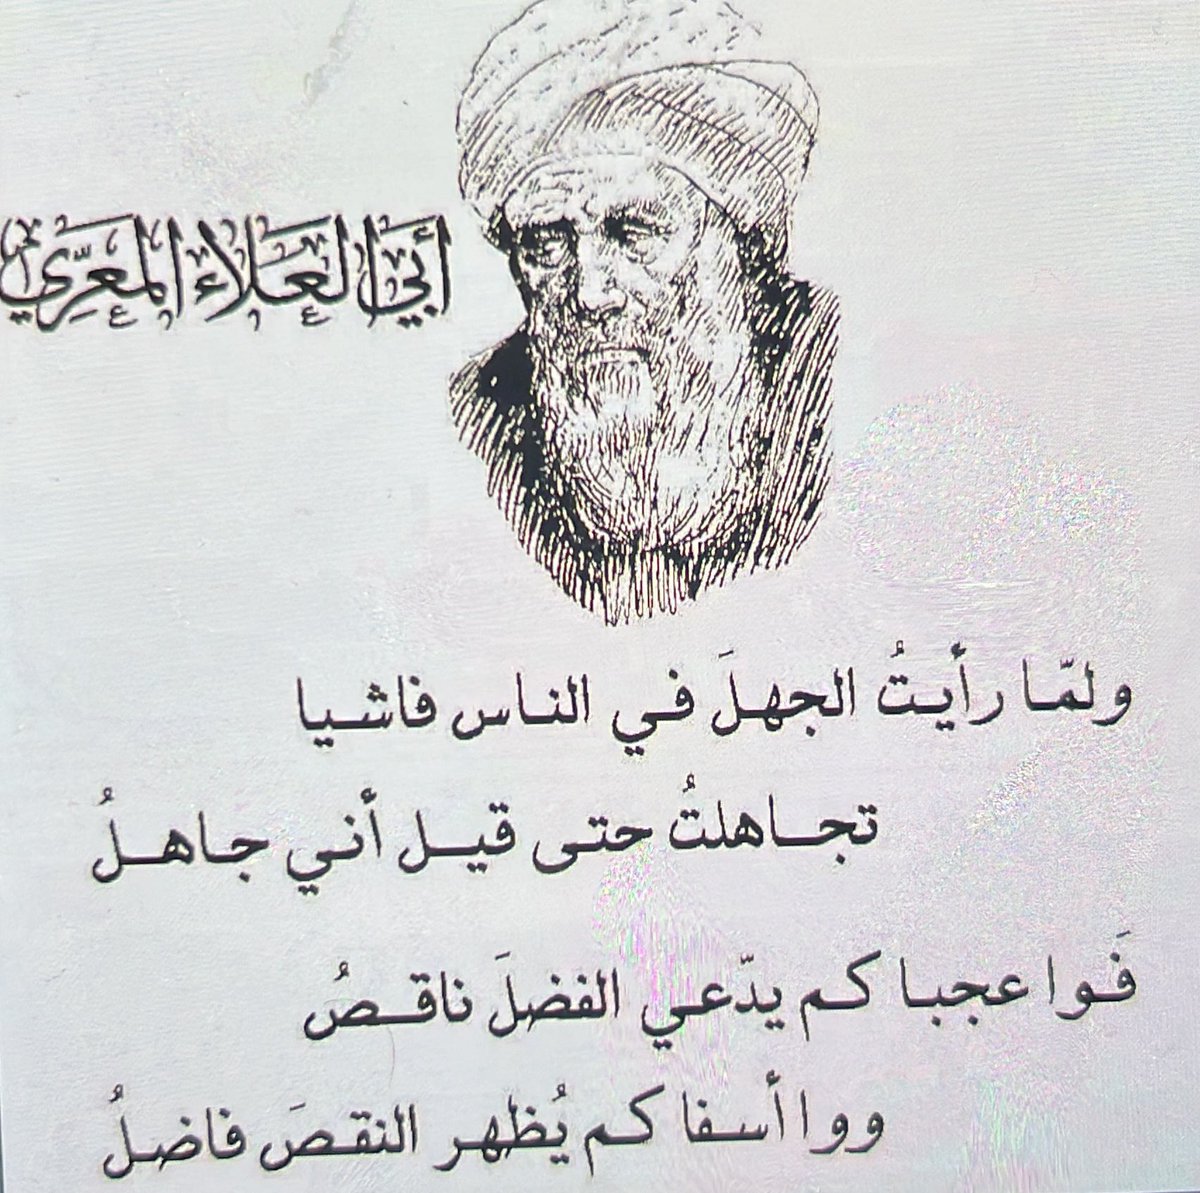 أبي العلاء المعرّي
ولمّا رأيتُ الجهلَ في الناس فاشيا
تجاهلتُ حتى قيل أني جاهلُ
فَوا عجبا كم يدّعي الفضلَ ناقصُ
ووا أسفا كم يُظهر النقصَ فاضلُ